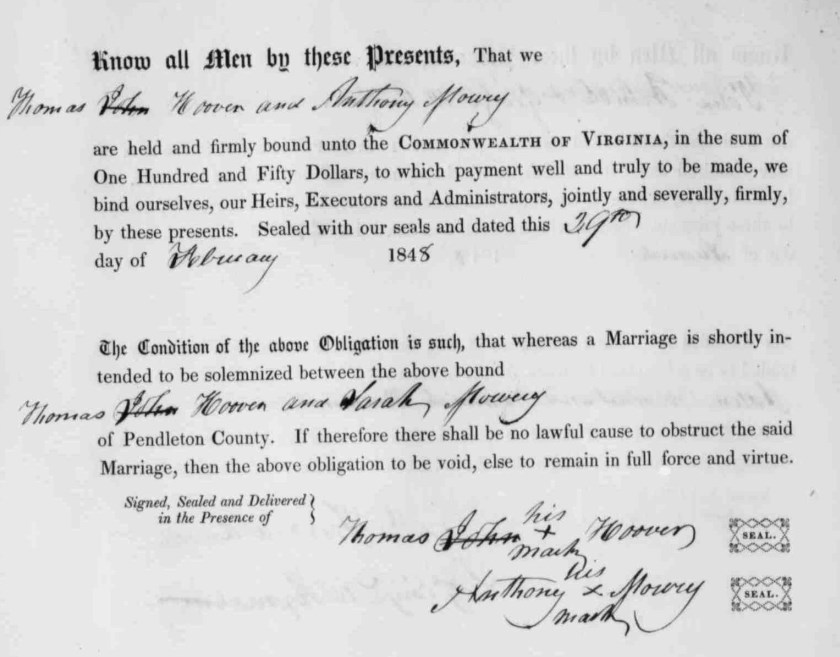 Know all Men by these Presents, That we
Thomas John Hoover and Anthony Mowry
are held and firmly bound unto the COMMONWEALTH OF VIRGINIA, in the sum of
One Hundred and Fifty Dollars, to which payment well and truly to be made, we
bind ourselves, our Heirs, Executors and Administrators, jointly and severally, firmly,
by these presents. Sealed with our seals and dated this 29th
day of February 1848
The Condition of the above Obligation is such, that whereas a Marriage is shortly in-
tended to be solemnized between the above bound
Thomas John Hoover and Sarah Mowry
of Pendleton County. If therefore there shall be no lawful cause to obstruct the said
Marriage, then the above obligation to be void, else to remain in full force and virtue.
Signed, Sealed and Delivered
in the Presence of
his
Thomas John + Hoover SEAL.
mark
his
Anthony x Mowry SEAL.
mark